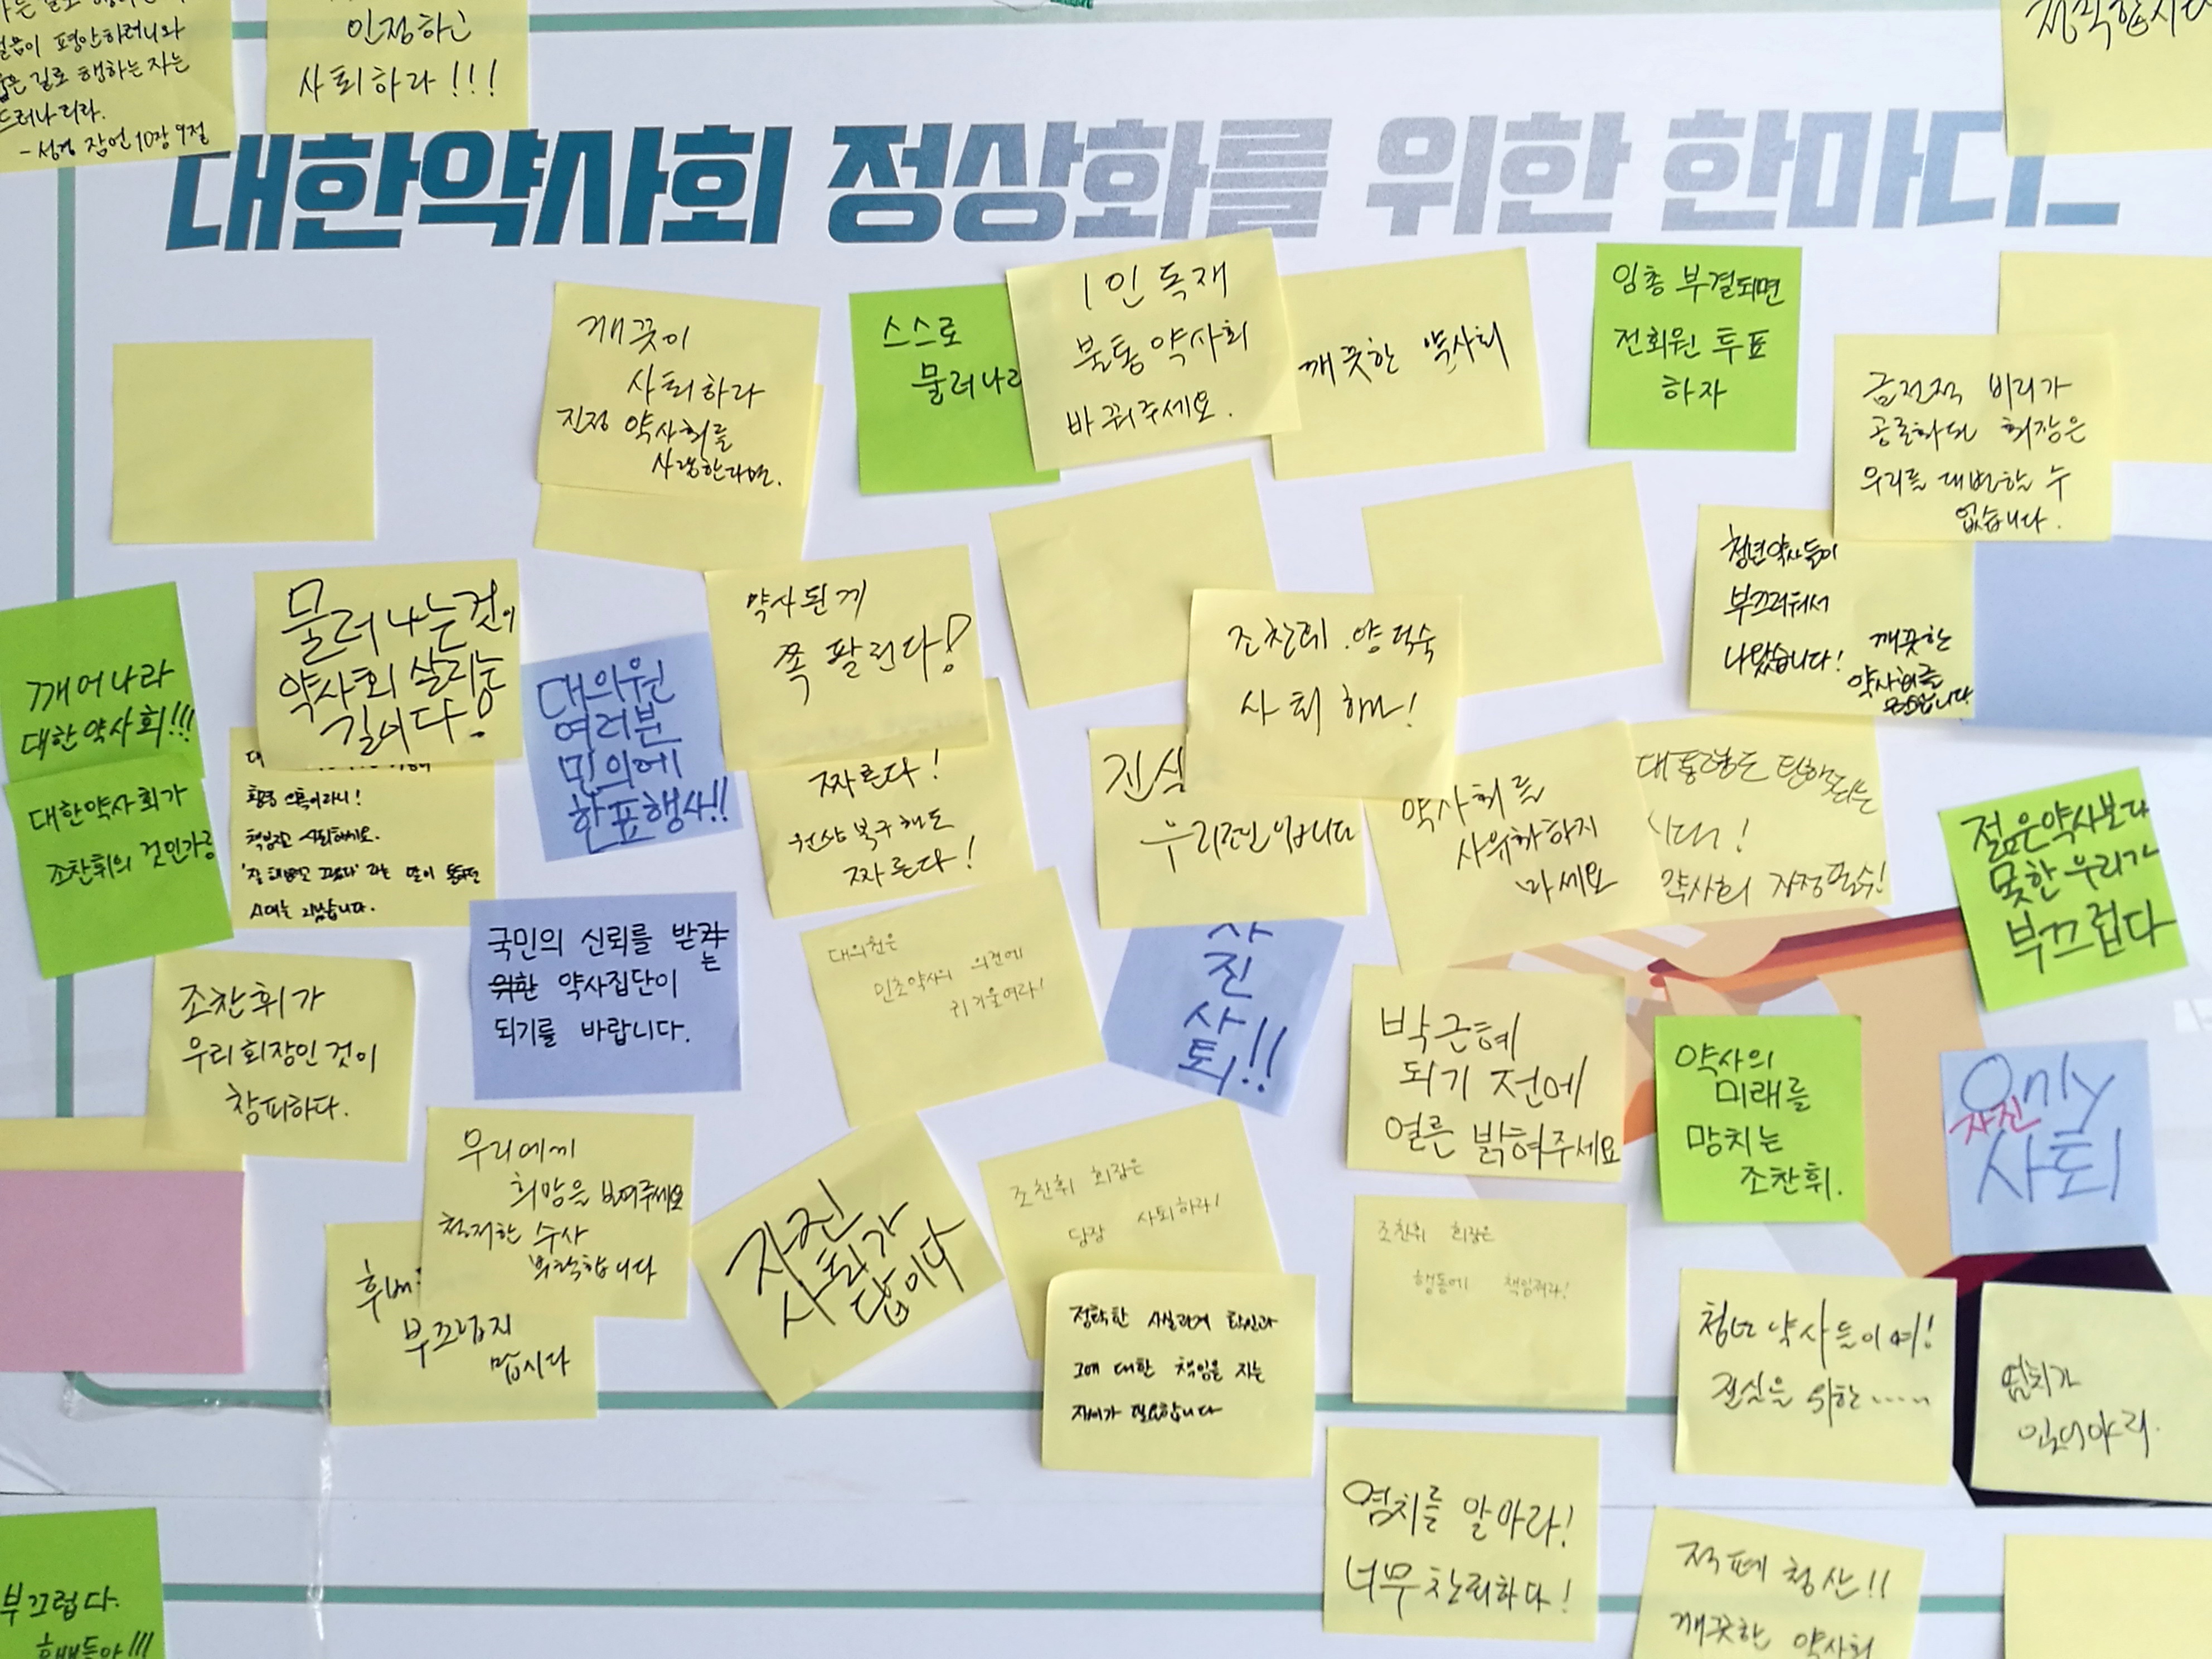 걸음이 평안하려니와
길로 행하는 자는
드러나리라.
- 성경 잠언 10장 9절
인정하고
사퇴하라!!!
정직합시다
대한약사회 정상화를 위한 한마디_
깨끗이
사퇴하라
진정 약사회를
사랑한다면.
스스로
물러나라
1인 독재
불통 약사회
바꿔주세요.
깨끗한 약사회
임총 부결되면
전회원 투표
하자
금전적 비리가
회장은
우리를 대변할 수
없습니다.
청년약사들이
부끄러워서
나왔습니다!
깨끗한
약사회를
깨어나라
대한약사회!!!
대한약사회가
조찬휘의 것인가!
물러나는것이
약사회 살리는
길이다!
횡령 의혹이라니!
책임지고 사퇴하세요.
시대는 지났습니다.
대의원
여러분
민의에
한표행사!!
약사된게
쪽팔린다!
짜른다!
원상복구해도
짜른다!
조찬휘.양덕숙
사퇴해!
진실
우리편입니다
약사회를
사유화하지
마세요
대통령도 탄핵되는
시대!
약사회 자정필수!
젊은약사보다
못한 우리가
부끄럽다
조찬휘가
우리 회장인 것이
창피하다.
국민의 신뢰를 받는
약사집단이
되기를 바랍니다.
대의원은
민초약사의 의견에
귀 기울여라!
자
진
사
퇴!!
박근혜
되기 전에
얼른 밝혀주세요
약사의
미래를
망치는
조찬휘.
Only
자진
사퇴
우리에게
희망을 보여주세요
철저한 수사
부탁합니다
후배
부끄럽지
맙시다
자진
사퇴가
답이다
조찬휘 회장은
당장 사퇴하라!
조찬휘 회장은
행동에 책임져라!
정확한 사실관계 확인과
그에 대한 책임을 지는
자세가 필요합니다
청년약사들이여!
진실을 위한.....
염치가
있어야지.
염치를 알아라!
너무 찬휘하다!
적폐청산!!
깨끗한 약사회
부끄럽다.
후배들아!!!